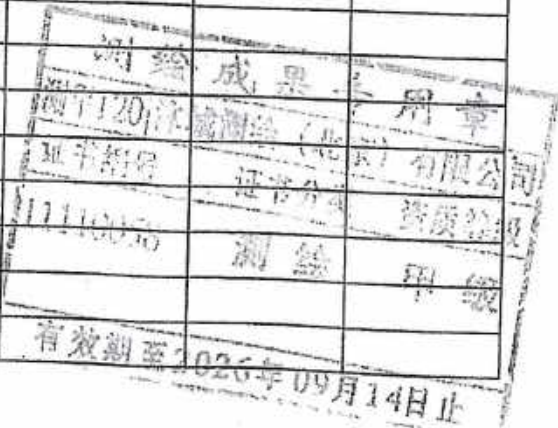 测绘成果专用章
测绘（北京）有限公司
证书编号 证书分类 资质等级
测绘 甲级
有效期至2026年09月14日止